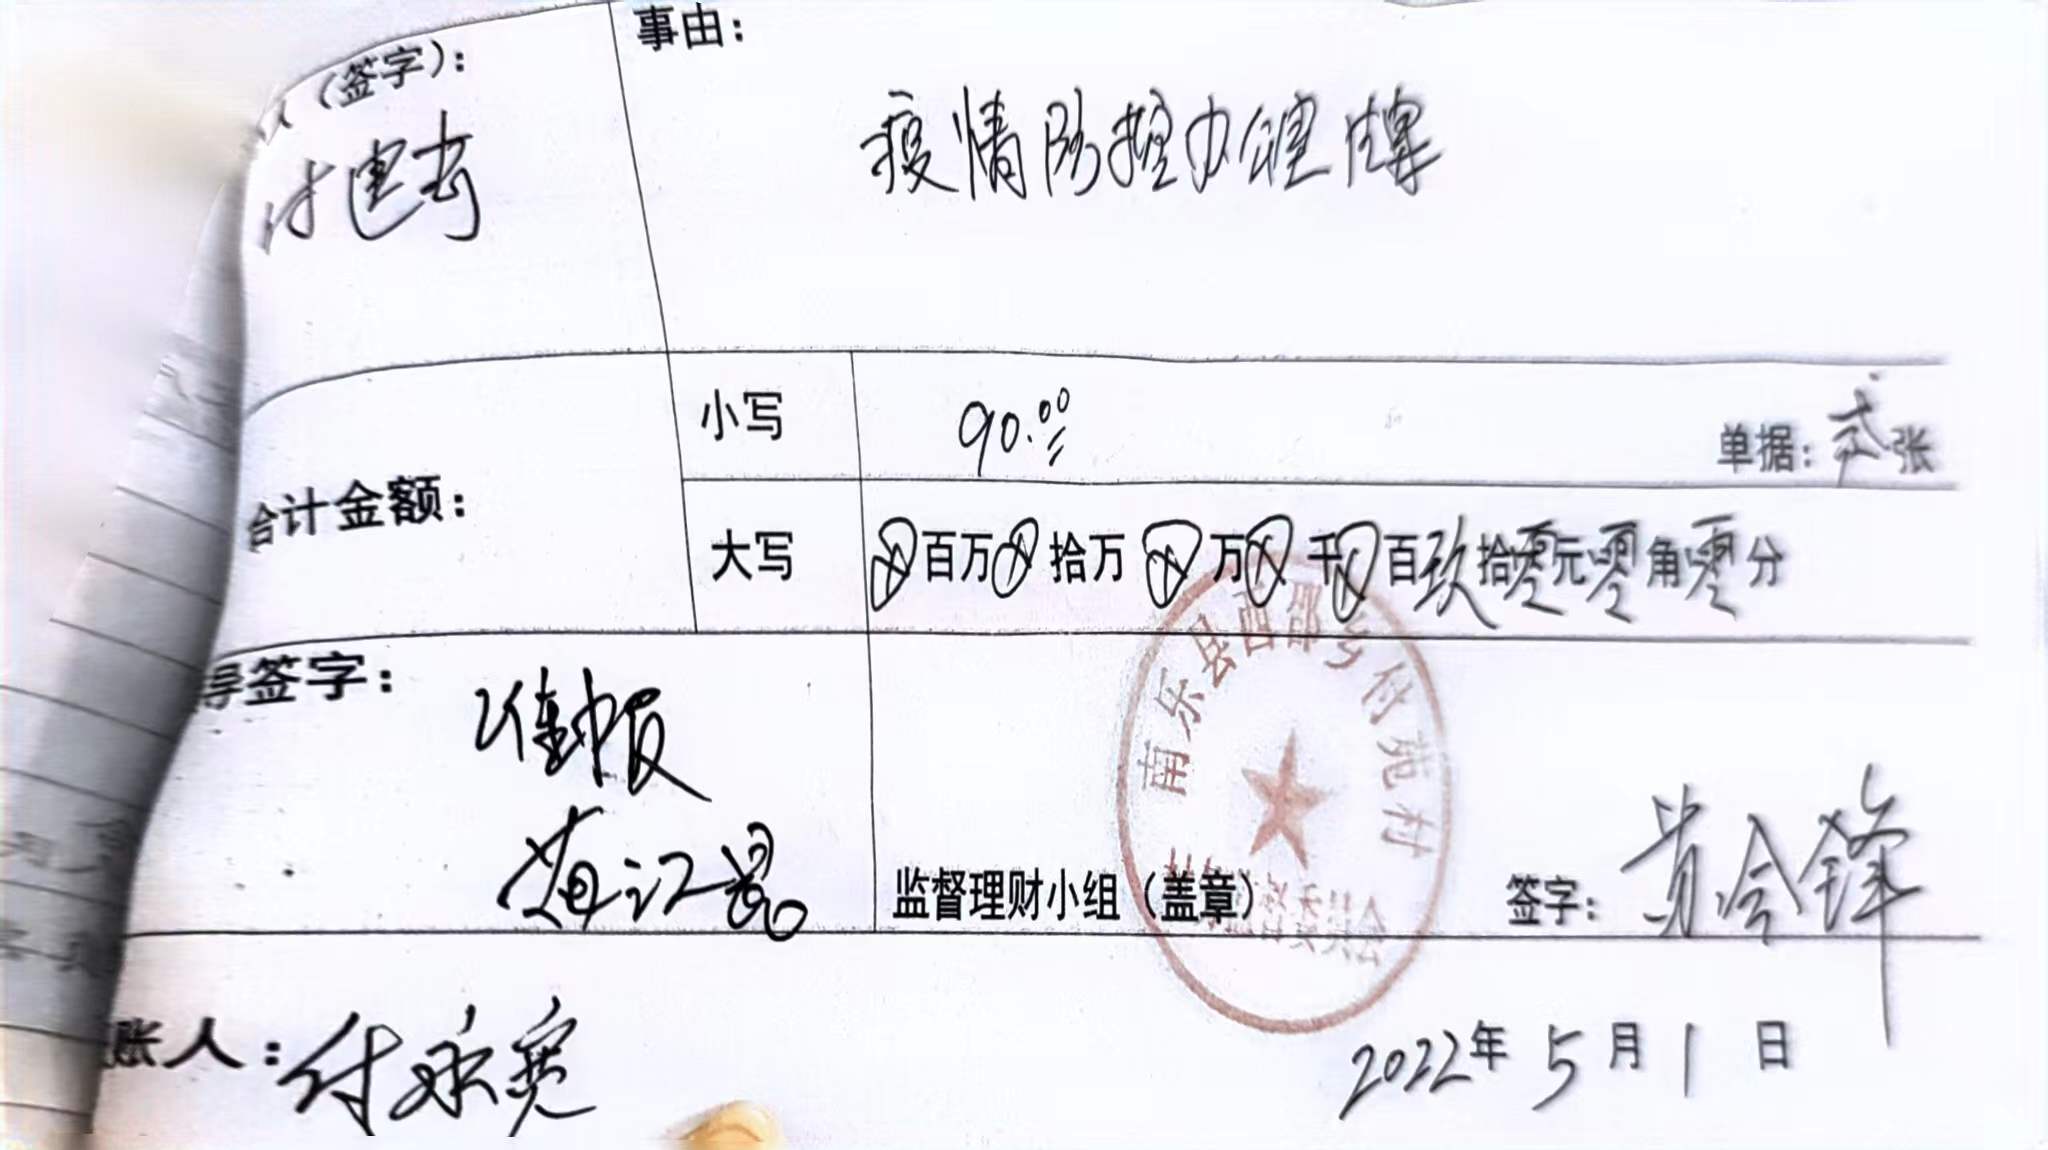 （签字）：
付建考
事由：
疫情防控办健牌
合计金额：
小写
90.00
单据：贰张
大写
百万 拾万 万 千 百玖拾零元零角零分
南乐县西邵乡付苑村
导签字：
监督理财小组（盖章）
签字：黄会锋
账人：付永宽
2022年5月1日